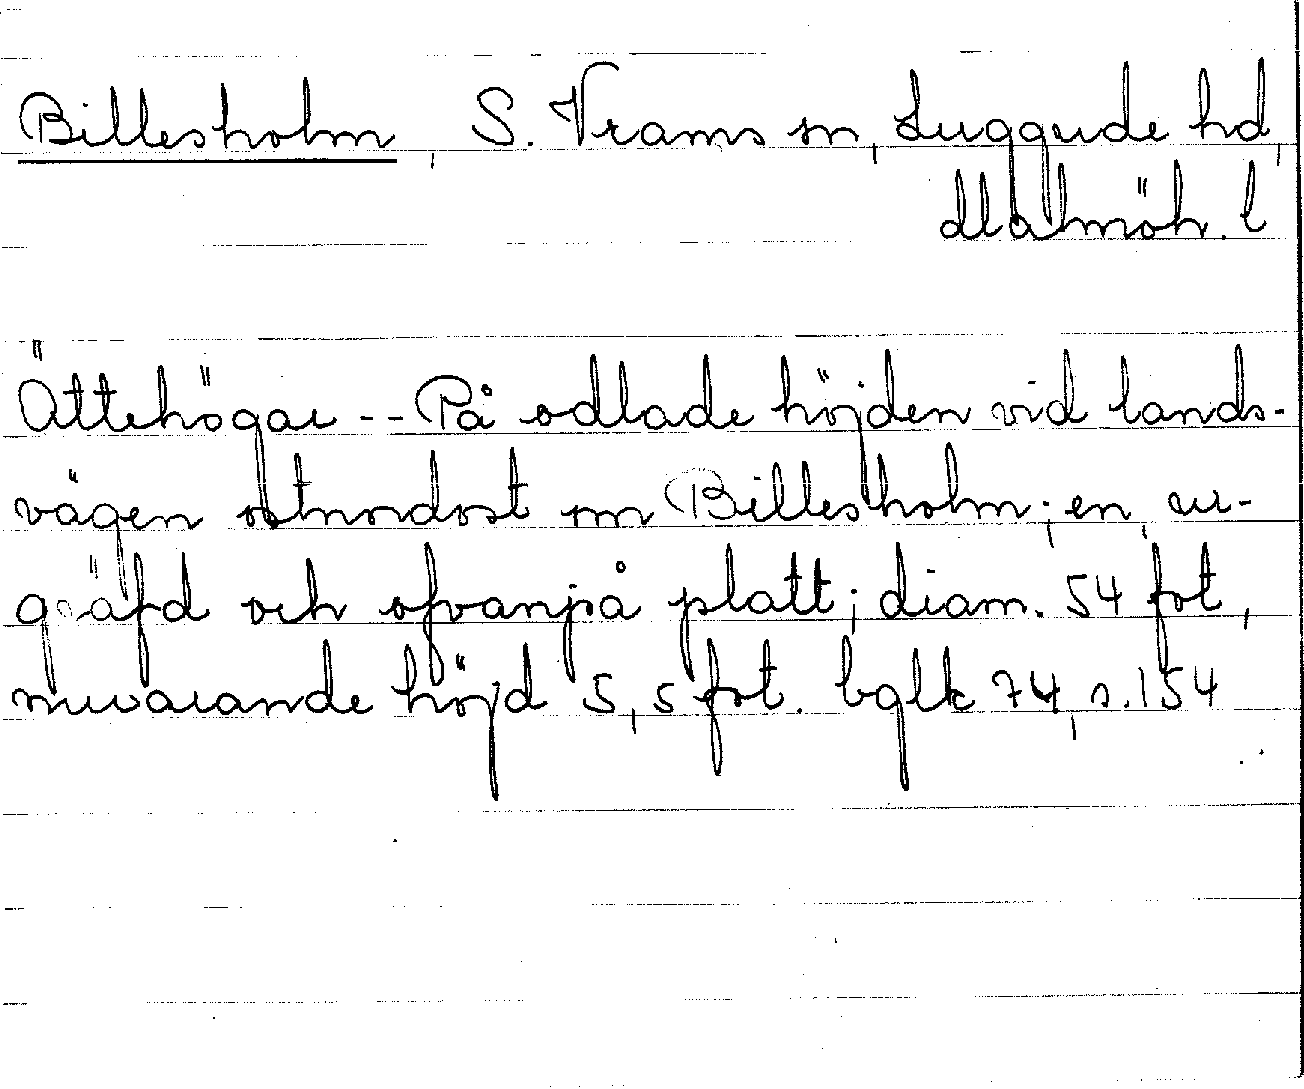 Billesholm, S. Vrams sn, Luggude hd,
Malmöh. l
Ättehögar -- På odlade höjden vid lands-
vägen ostnordost om Billesholm; en, ur-
gräfd och ofvanpå platt; diam. 54 fot,
nuvarande höjd 5,5 fot. bglk 74, s. 154